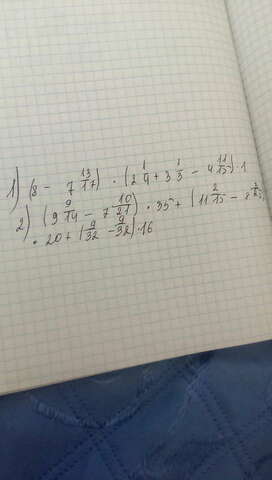 1) (8 - 7 13/17) · (2 1/4 + 3 1/3 - 4 11/15) · 1
2) (9 9/14 - 7 10/21) · 35 + (11 2/15 - 8
· 20 + (9/32 - 9/32) · 16